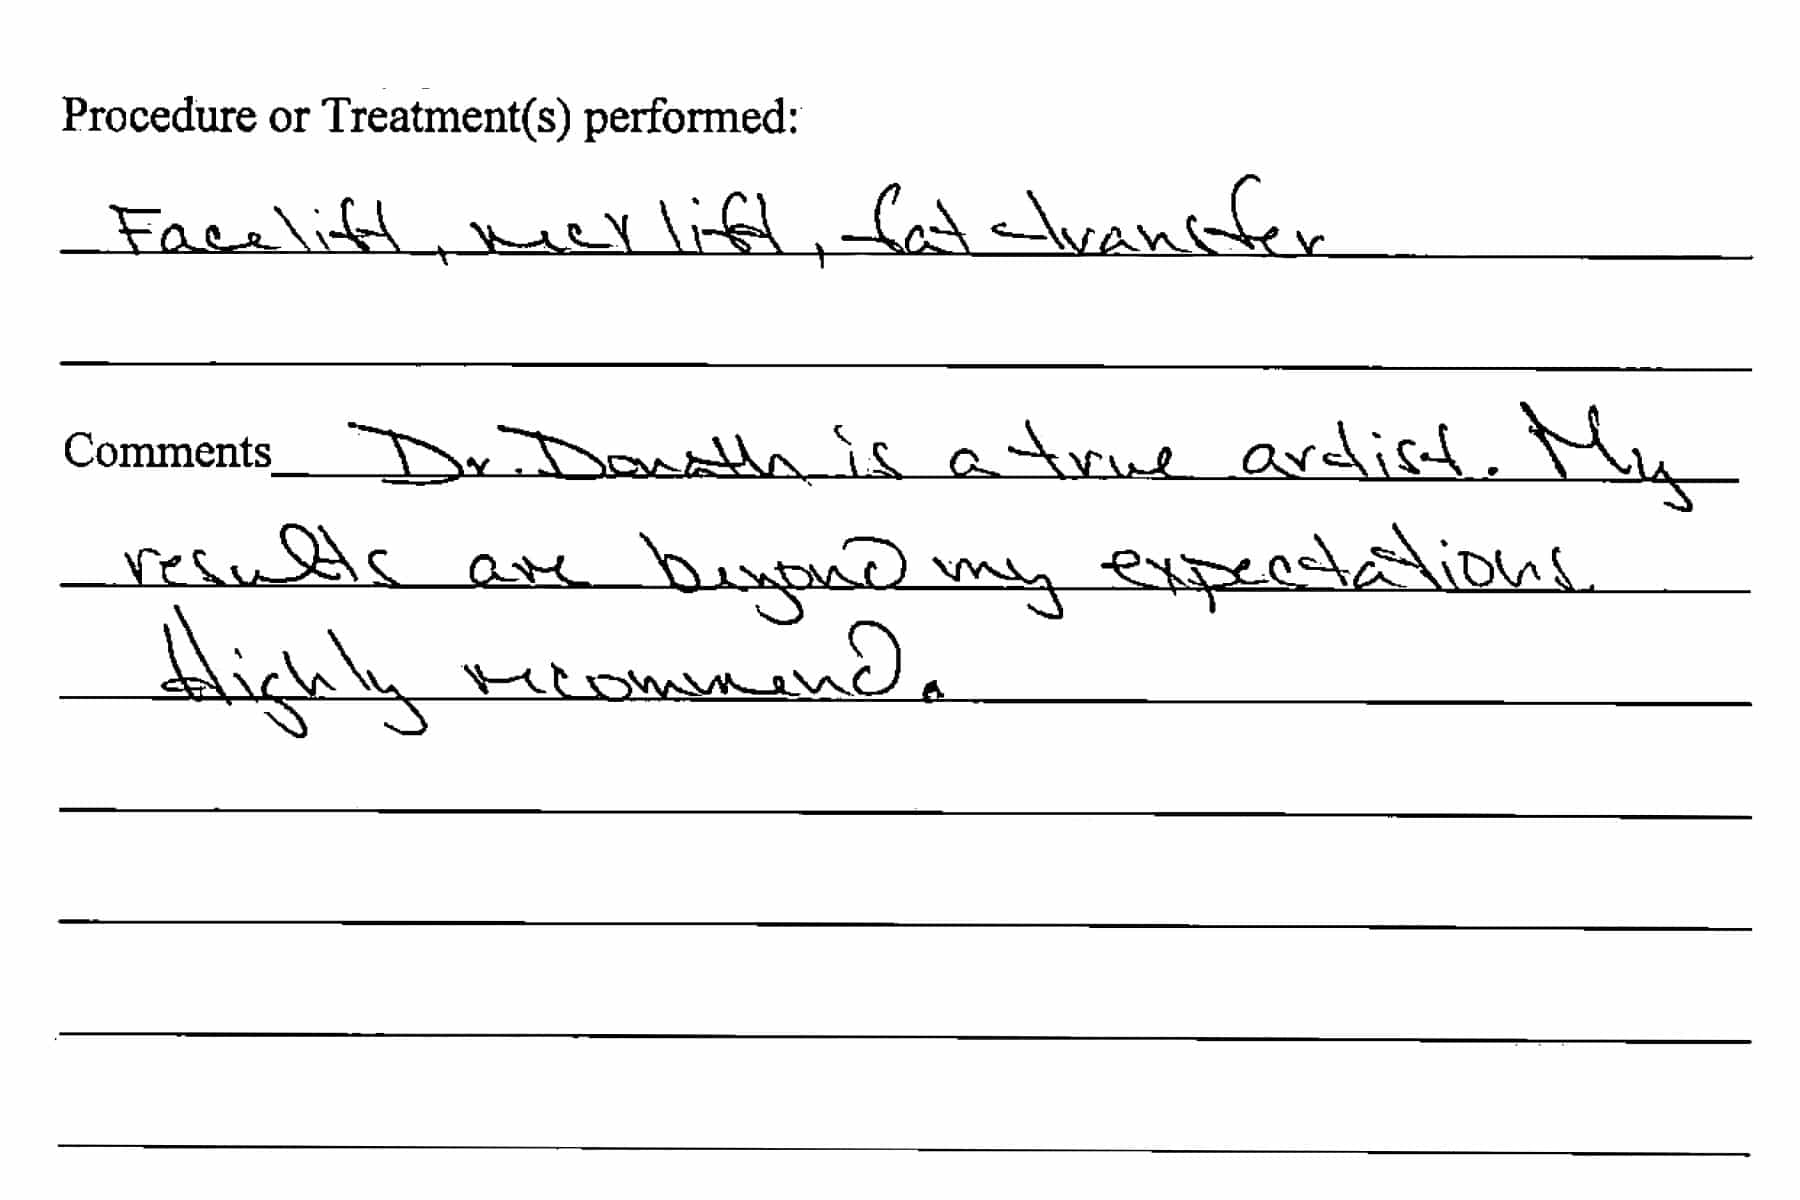 Procedure or Treatment(s) performed:
Facelift, neck lift, fat transfer
Comments Dr. Donath is a true artist. My
results are beyond my expectations.
Highly recommend.